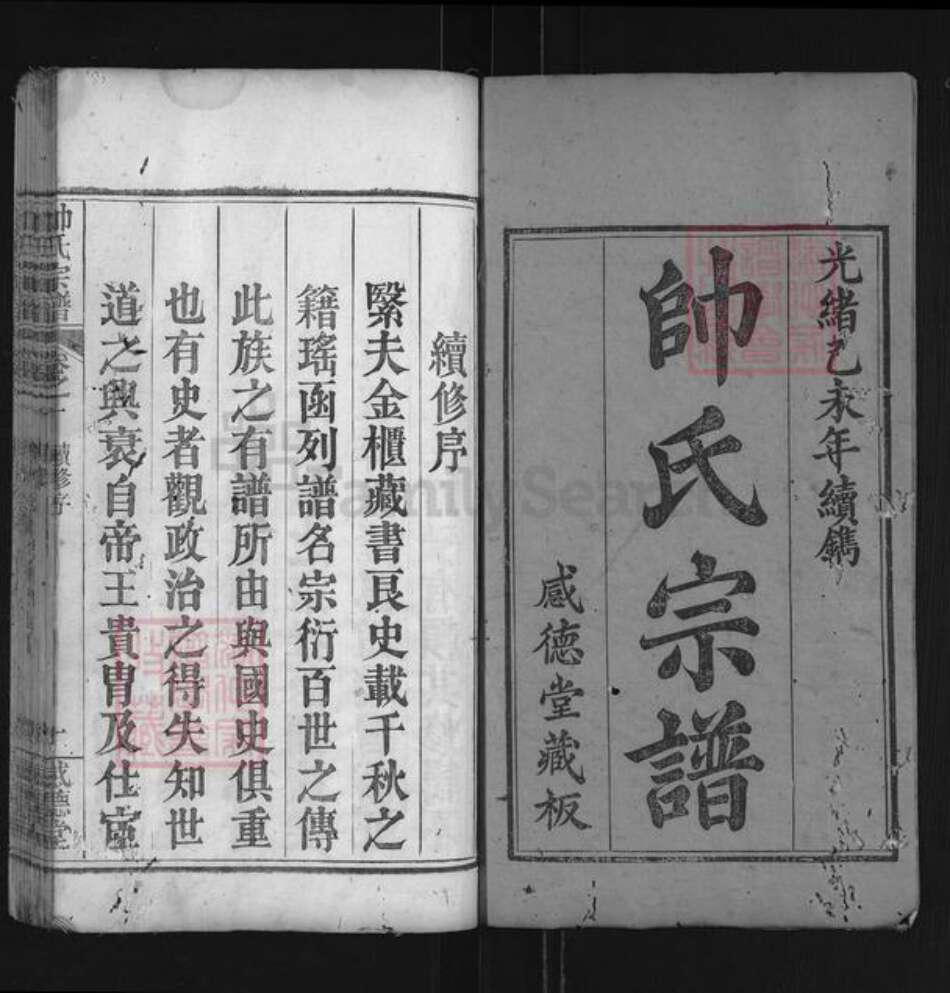 光緒乙未年續鐫
帥氏宗譜
感德堂藏板
續修序
繄夫金櫃藏書艮史載千秋之
籍瑤函列譜名宗衍百世之傳
此族之有譜所由與國史俱重
也有史者觀政治之得失知世
道之興衰自帝王貴胄及仕宦
帥氏宗譜
續修序
感德堂
FamilySearch